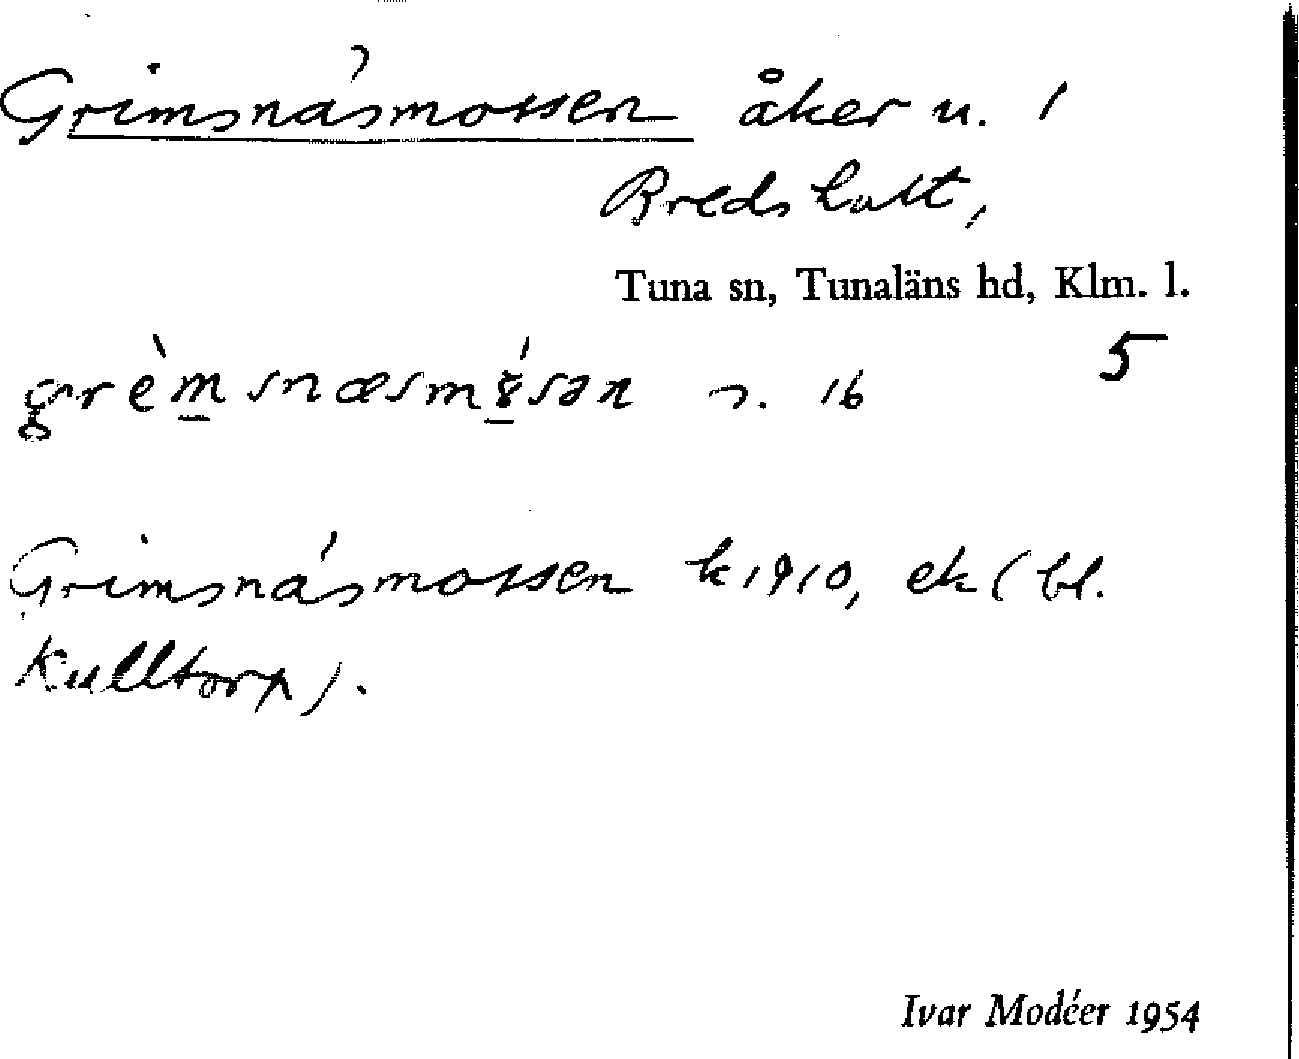 Grimsnäsmossen åker u. 1
Bredshult,
Tuna sn, Tunaläns hd, Klm. l.
5
grèmsnæsmósən s. 16
Grimsnäsmossen k 1910, ek (bl.
Kulltorp).
Ivar Modéer 1954